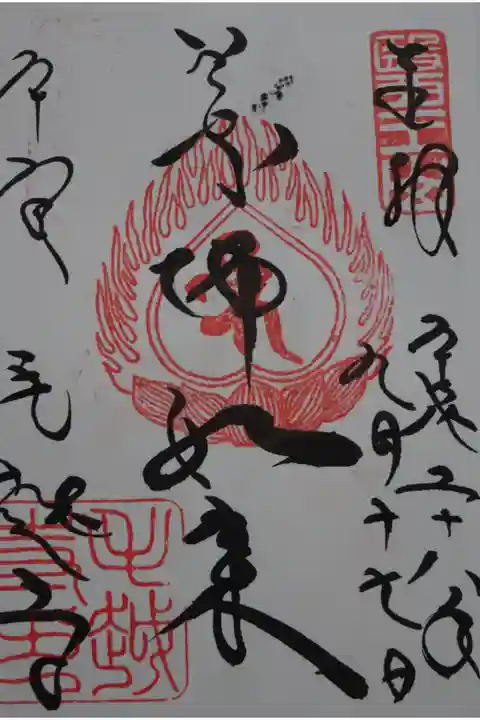 奉拝
平成二十八年
九月十七日
薬師如来
平泉 毛越寺